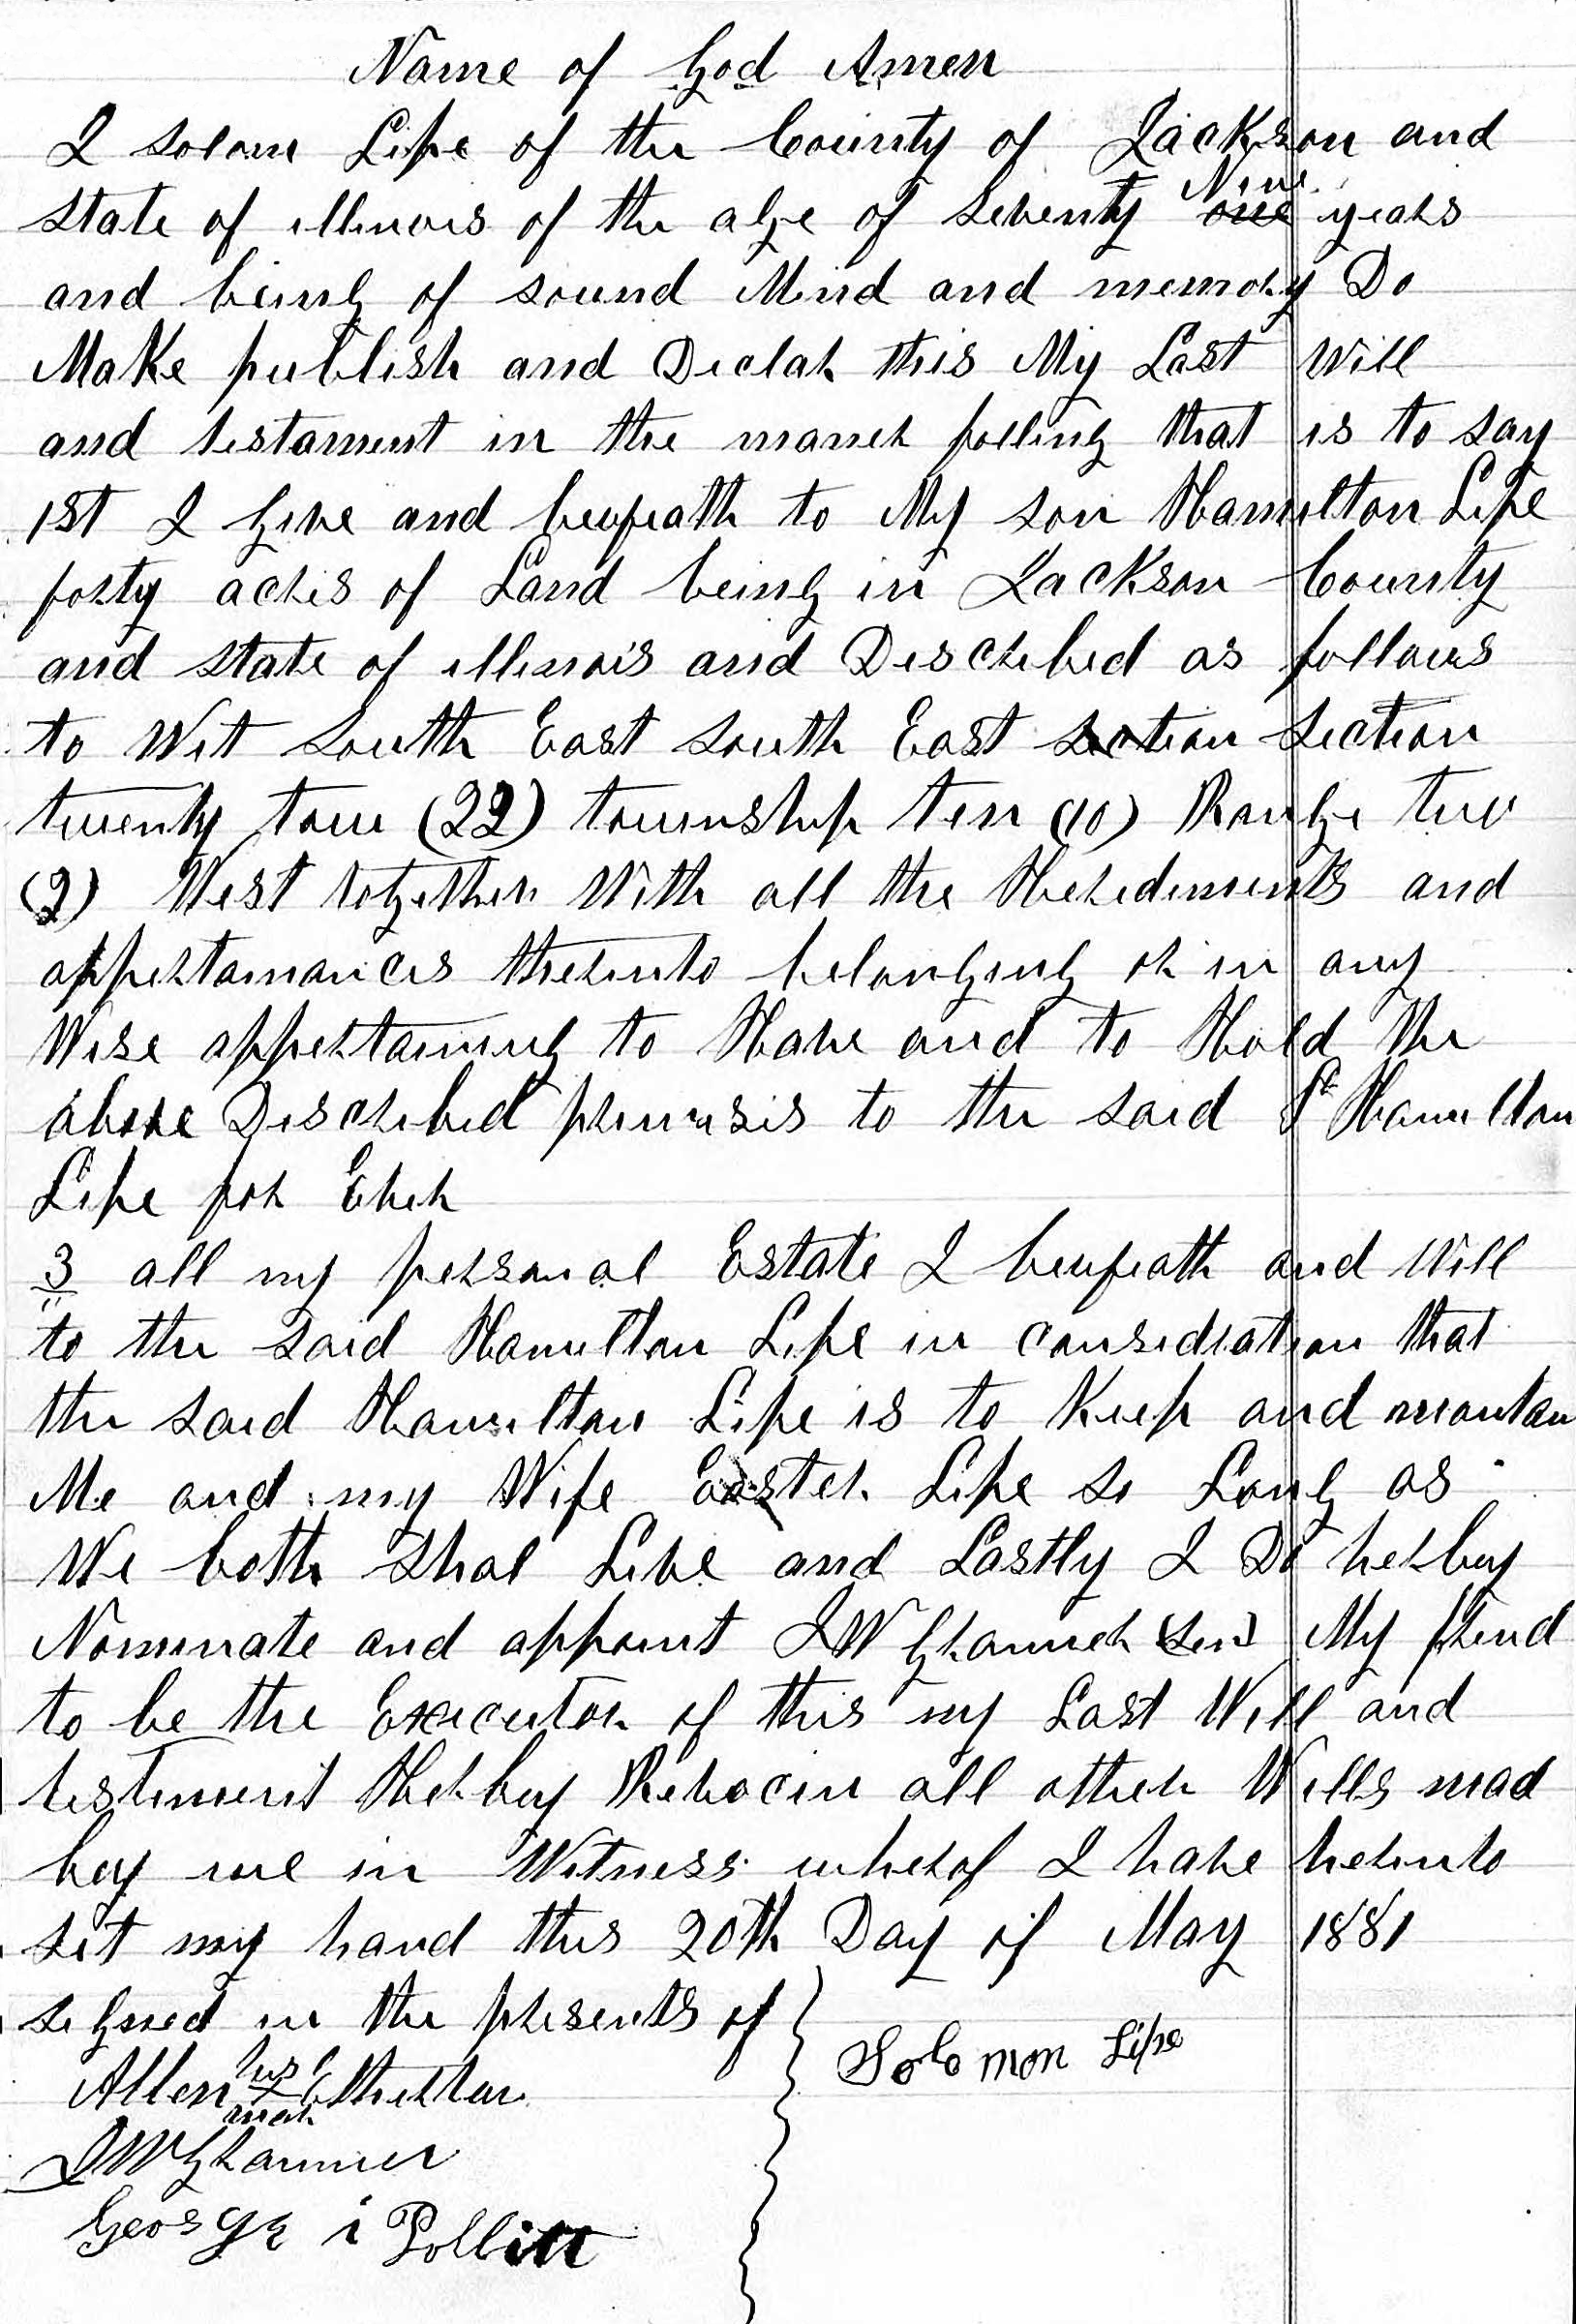 Name of God Amen
I Solom Lipe of the County of Jackson and
state of illinois of the alge of Seventy one Nine years
and being of sound Mind and memory Do
Make publish and Declar this My Last Will
and testament in the maner folling that is to say
1st I Give and bequeath to My son Hamilton Lipe
forty acres of Land being in Jackson County
and state of illinois and Discribed as follows
to Wit South East South East section Section
twenty tow (22) township ten (10) Range two
(2) West together With all the Heridiments and
appertanances thereunto belonging or in any
Wise appertaining to Have and to Hold the
above Discribed premasis to the said Hamilton
Lipe for Ever
3 all my personal Estate I bequeath and Will
to the said Hamilton Lipe in considration that
the said Hamilton Lipe is to Keep and mantan
Me and my Wife Easter Lipe so Long as
We both shal Live and Lastly I Do herby
Nominate and appoint J W Grammer (Sen) My frend
to be the Executor of this my Last Will and
testiment Herby Revocin all other Wills mad
by me in Witness wherof I have herunto
set my hand this 20th Day of May 1881
signed in the presents of
Solomon Lipe
Allen his X mark
J W Grammer
George i Pollitt